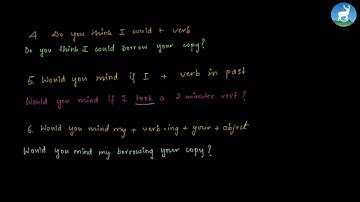 4. Do you think I could + verb
Do you think I could borrow your copy?
5. Would you mind if I + verb in past
Would you mind if I took a 2 minutes rest?
6. Would you mind my + verb-ing + your + object
Would you mind my borrowing your copy?